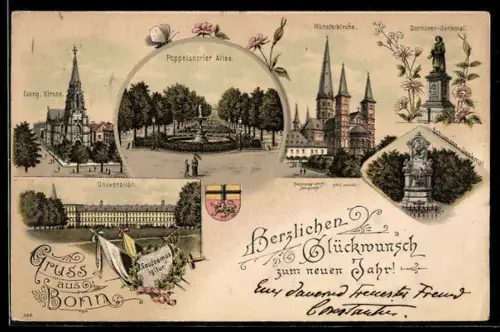 Münsterkirche.
Beethoven-Denkmal.
Poppelsdorfer Allee.
Evang. Kirche.
Universität.
Gaudeamus
igitur
Gruss
aus
Bonn
Herzlichen
Glückwunsch
zum neuen Jahr!
Euer dauernd treuester Freund
Constantin.